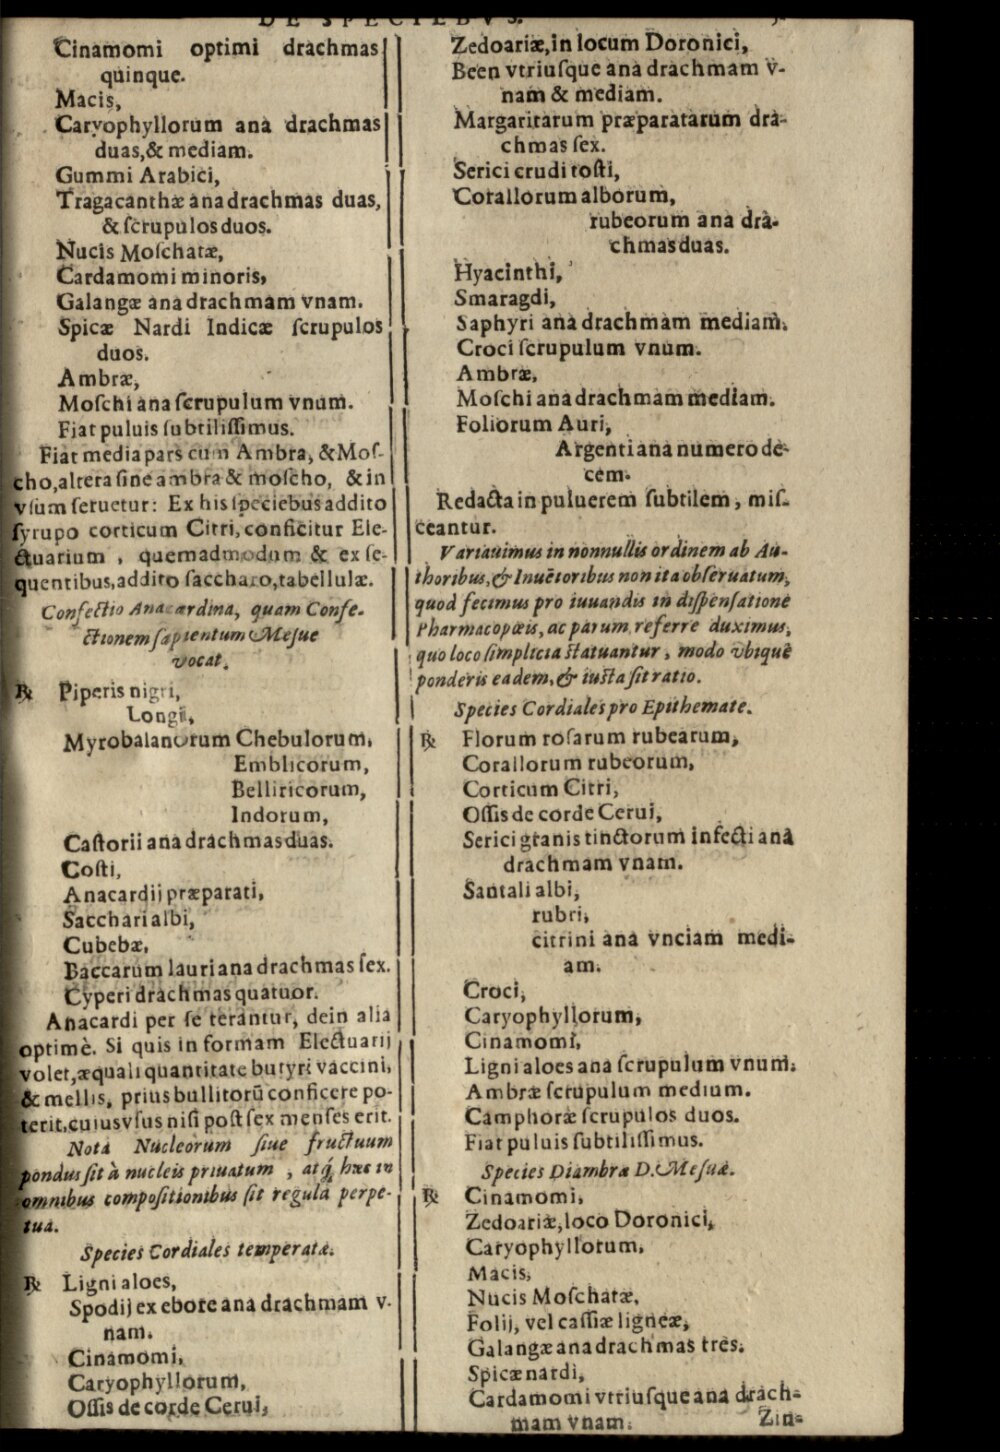 DE SPECIEBVS.
Cinamomi optimi drachmas
quinque.
Macis,
Caryophyllorum ana drachmas
duas,& mediam.
Gummi Arabici,
Tragacanthæ ana drachmas duas,
& ſcrupulos duos.
Nucis Moſchatæ,
Cardamomi minoris,
Galangæ ana drachmam vnam.
Spicæ Nardi Indicæ ſcrupulos
duos.
Ambræ,
Moſchi ana ſcrupulum vnum.
Fiat puluis ſubtiliſſimus.
Fiat media pars cum Ambra, & Moſ-
cho,altera ſine ambra & moſcho, & in
vſum ſeruetur: Ex his ſpeciebus addito
ſyrupo corticum Citri, conficitur Ele-
ctuarium , quemadmodum & ex ſe-
quentibus,addito ſaccharo,tabellulæ.
Confectio Anacardina, quam Confe-
ctionem ſapientum Meſue
vocat.
℞ Piperis nigri,
Longi,
Myrobalanorum Chebulorum,
Emblicorum,
Belliricorum,
Indorum,
Caſtorii ana drachmas duas.
Coſti,
Anacardij præparati,
Sacchari albi,
Cubebæ,
Baccarum lauri ana drachmas ſex.
Cyperi drachmas quatuor.
Anacardi per ſe terantur, dein alia
optimè. Si quis in formam Electuarij
volet,æquali quantitate butyri vaccini,
& mellis, prius bullitorũ conficere po-
terit,cuius vſus niſi poſt ſex menſes erit.
Nota Nucleorum ſiue fructuum
pondus ſit à nucleis priuatum , atq́; hæc in
omnibus compoſitionibus ſit regula perpe-
tua.
Species Cordiales temperatæ.
℞ Ligni aloes,
Spodij ex ebore ana drachmam v-
nam.
Cinamomi,
Caryophyllorum,
Oſſis de corde Cerui,
Zedoariæ,in locum Doronici,
Been vtriuſque ana drachmam v-
nam & mediam.
Margaritarum præparatarum dra-
chmas ſex.
Serici crudi toſti,
Corallorum alborum,
rubeorum ana dra-
chmas duas.
Hyacinthi,
Smaragdi,
Saphyri ana drachmam mediam.
Croci ſcrupulum vnum.
Ambræ,
Moſchi ana drachmam mediam.
Foliorum Auri,
Argenti ana numero de-
cem.
Redacta in puluerem ſubtilem, miſ-
ceantur.
Variauimus in nonnullis ordinem ab Au-
thoribus,& Inuẽtoribus non ita obſeruatum,
quod fecimus pro iuuandis in diſpenſatione
Pharmacopœis, ac parum referre duximus,
quo loco ſimplicia ſtatuantur , modo vbique
ponderis eadem,& iuſta ſit ratio.
Species Cordiales pro Epithemate.
℞ Florum roſarum rubearum,
Corallorum rubeorum,
Corticum Citri,
Oſſis de corde Cerui,
Serici granis tinctorum infecti ana
drachmam vnam.
Santali albi,
rubri,
citrini ana vnciam medi-
am.
Croci,
Caryophyllorum,
Cinamomi,
Ligni aloes ana ſcrupulum vnum.
Ambræ ſcrupulum medium.
Camphoræ ſcrupulos duos.
Fiat puluis ſubtiliſſimus.
Species Diambra D. Meſuæ.
℞ Cinamomi,
Zedoariæ,loco Doronici,
Caryophyllorum,
Macis,
Nucis Moſchatæ,
Folij, vel caſſiæ ligneæ,
Galangæ ana drachmas tres.
Spicæ nardi,
Cardamomi vtriuſque ana drach-
mam vnam.
Zin-